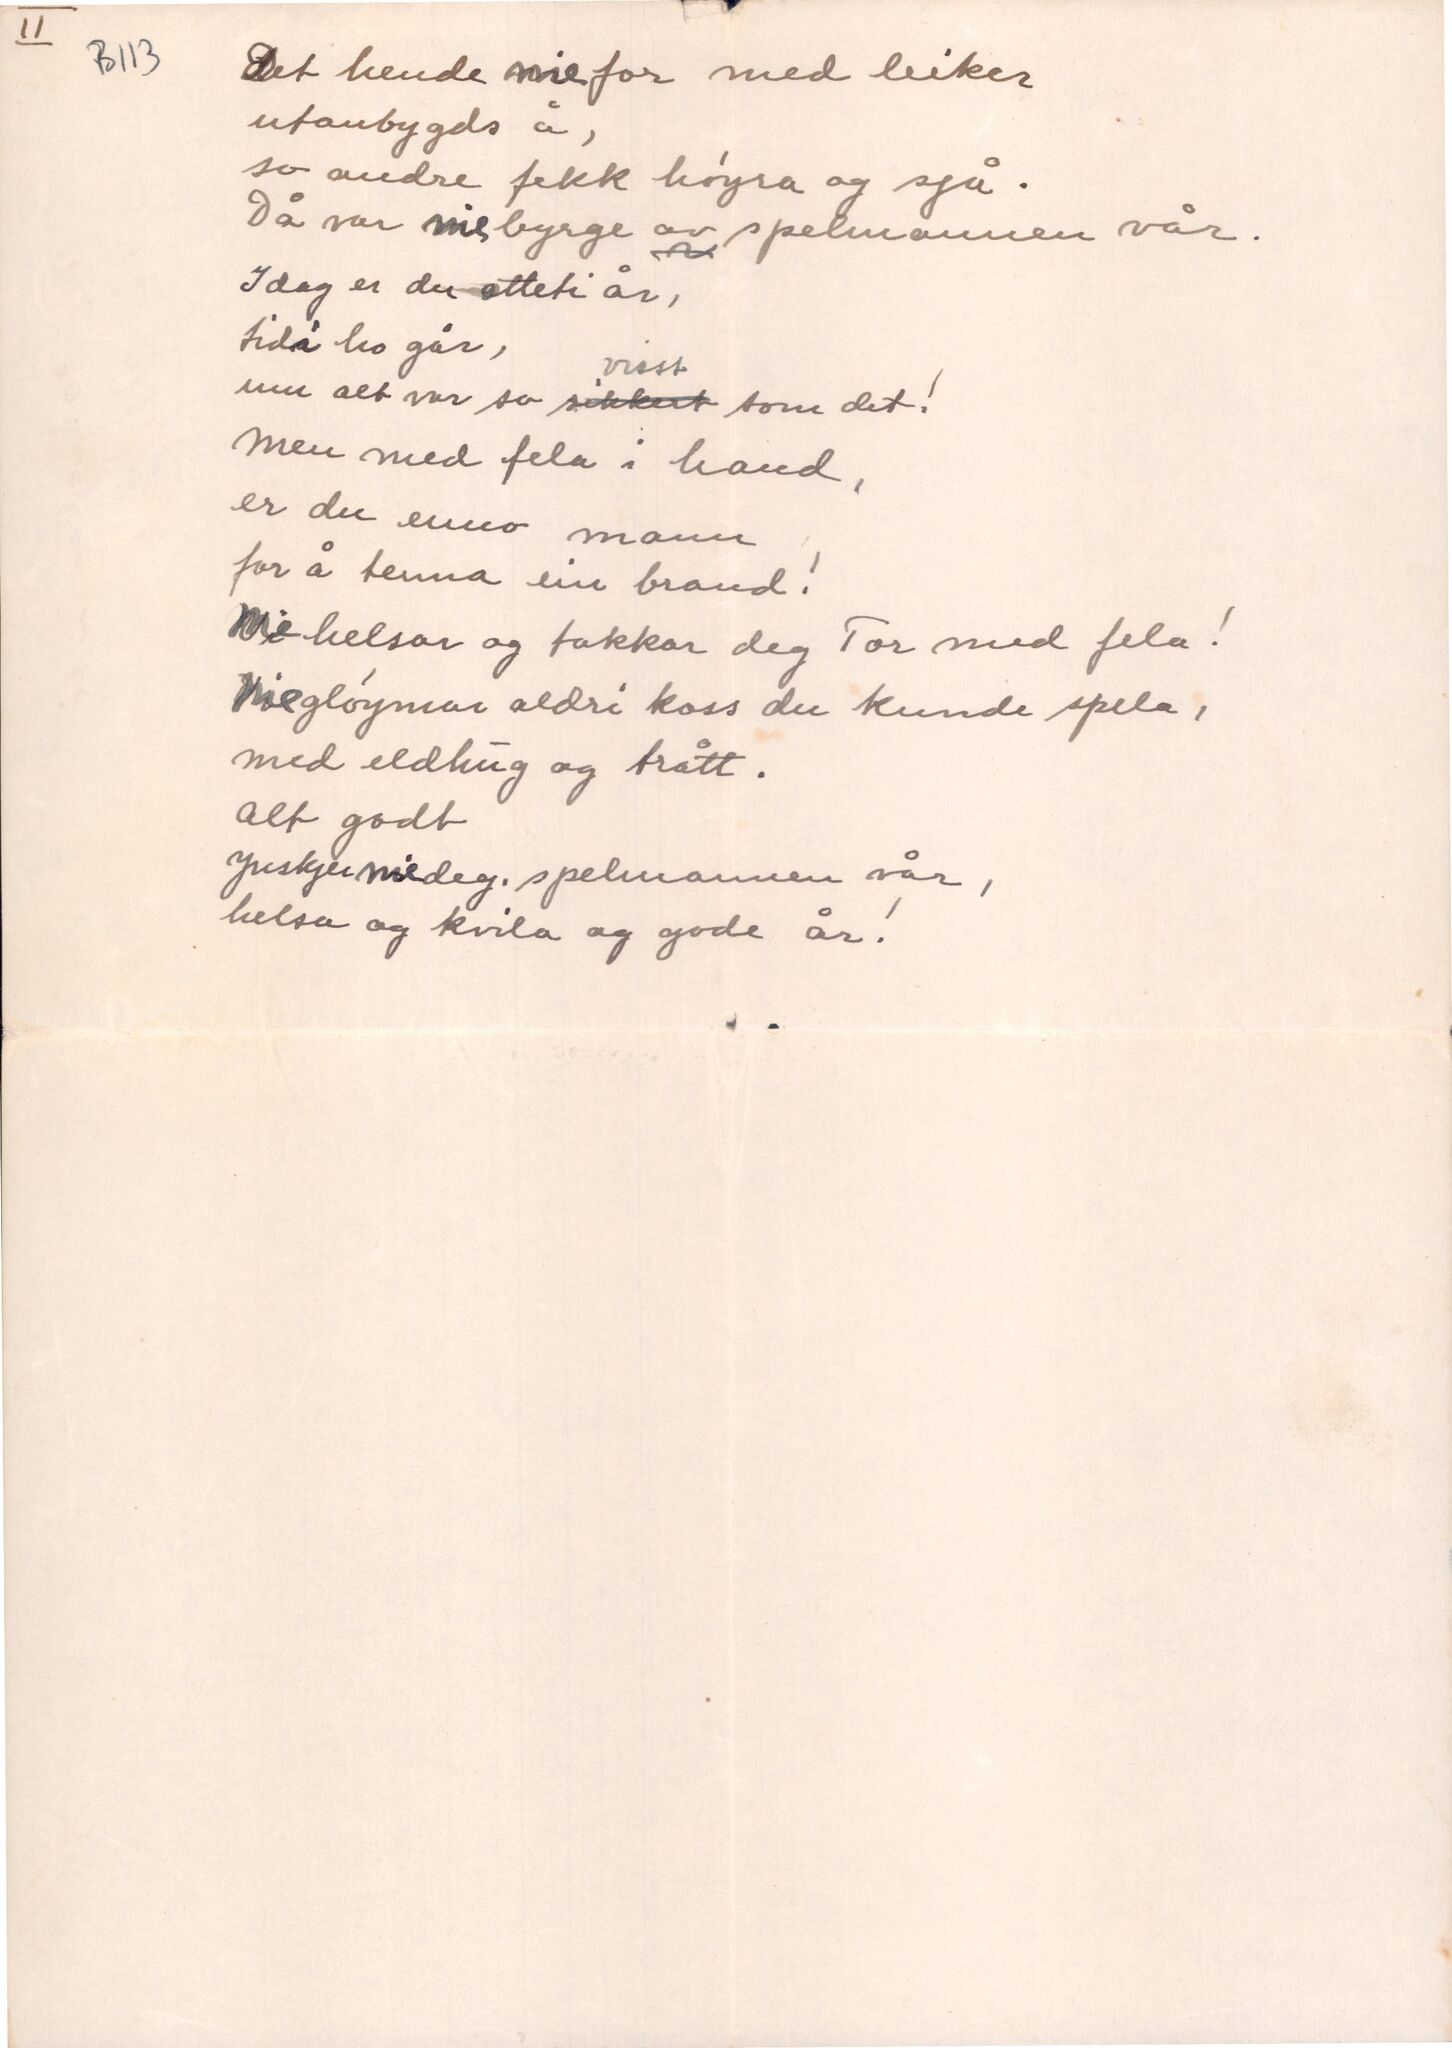 II
B113
Det hende mie for med leiker
utanbygds å,
so andre fekk höyra og sjå.
Då var mie byrge av spelmannen vår.
Idag er du otteti år,
tidi ho går,
um alt var so visst
sikkert som det!
Men med fela i hand,
er du enno mann
for å tenna ein brand!
Mie helsar og takkar deg Tor med fela!
Mie glöymar aldri koss du kunde spela,
med eldhug og trått.
Alt godt
ynskjer mie deg. spelmannen vår,
helsa og kvila og gode år!